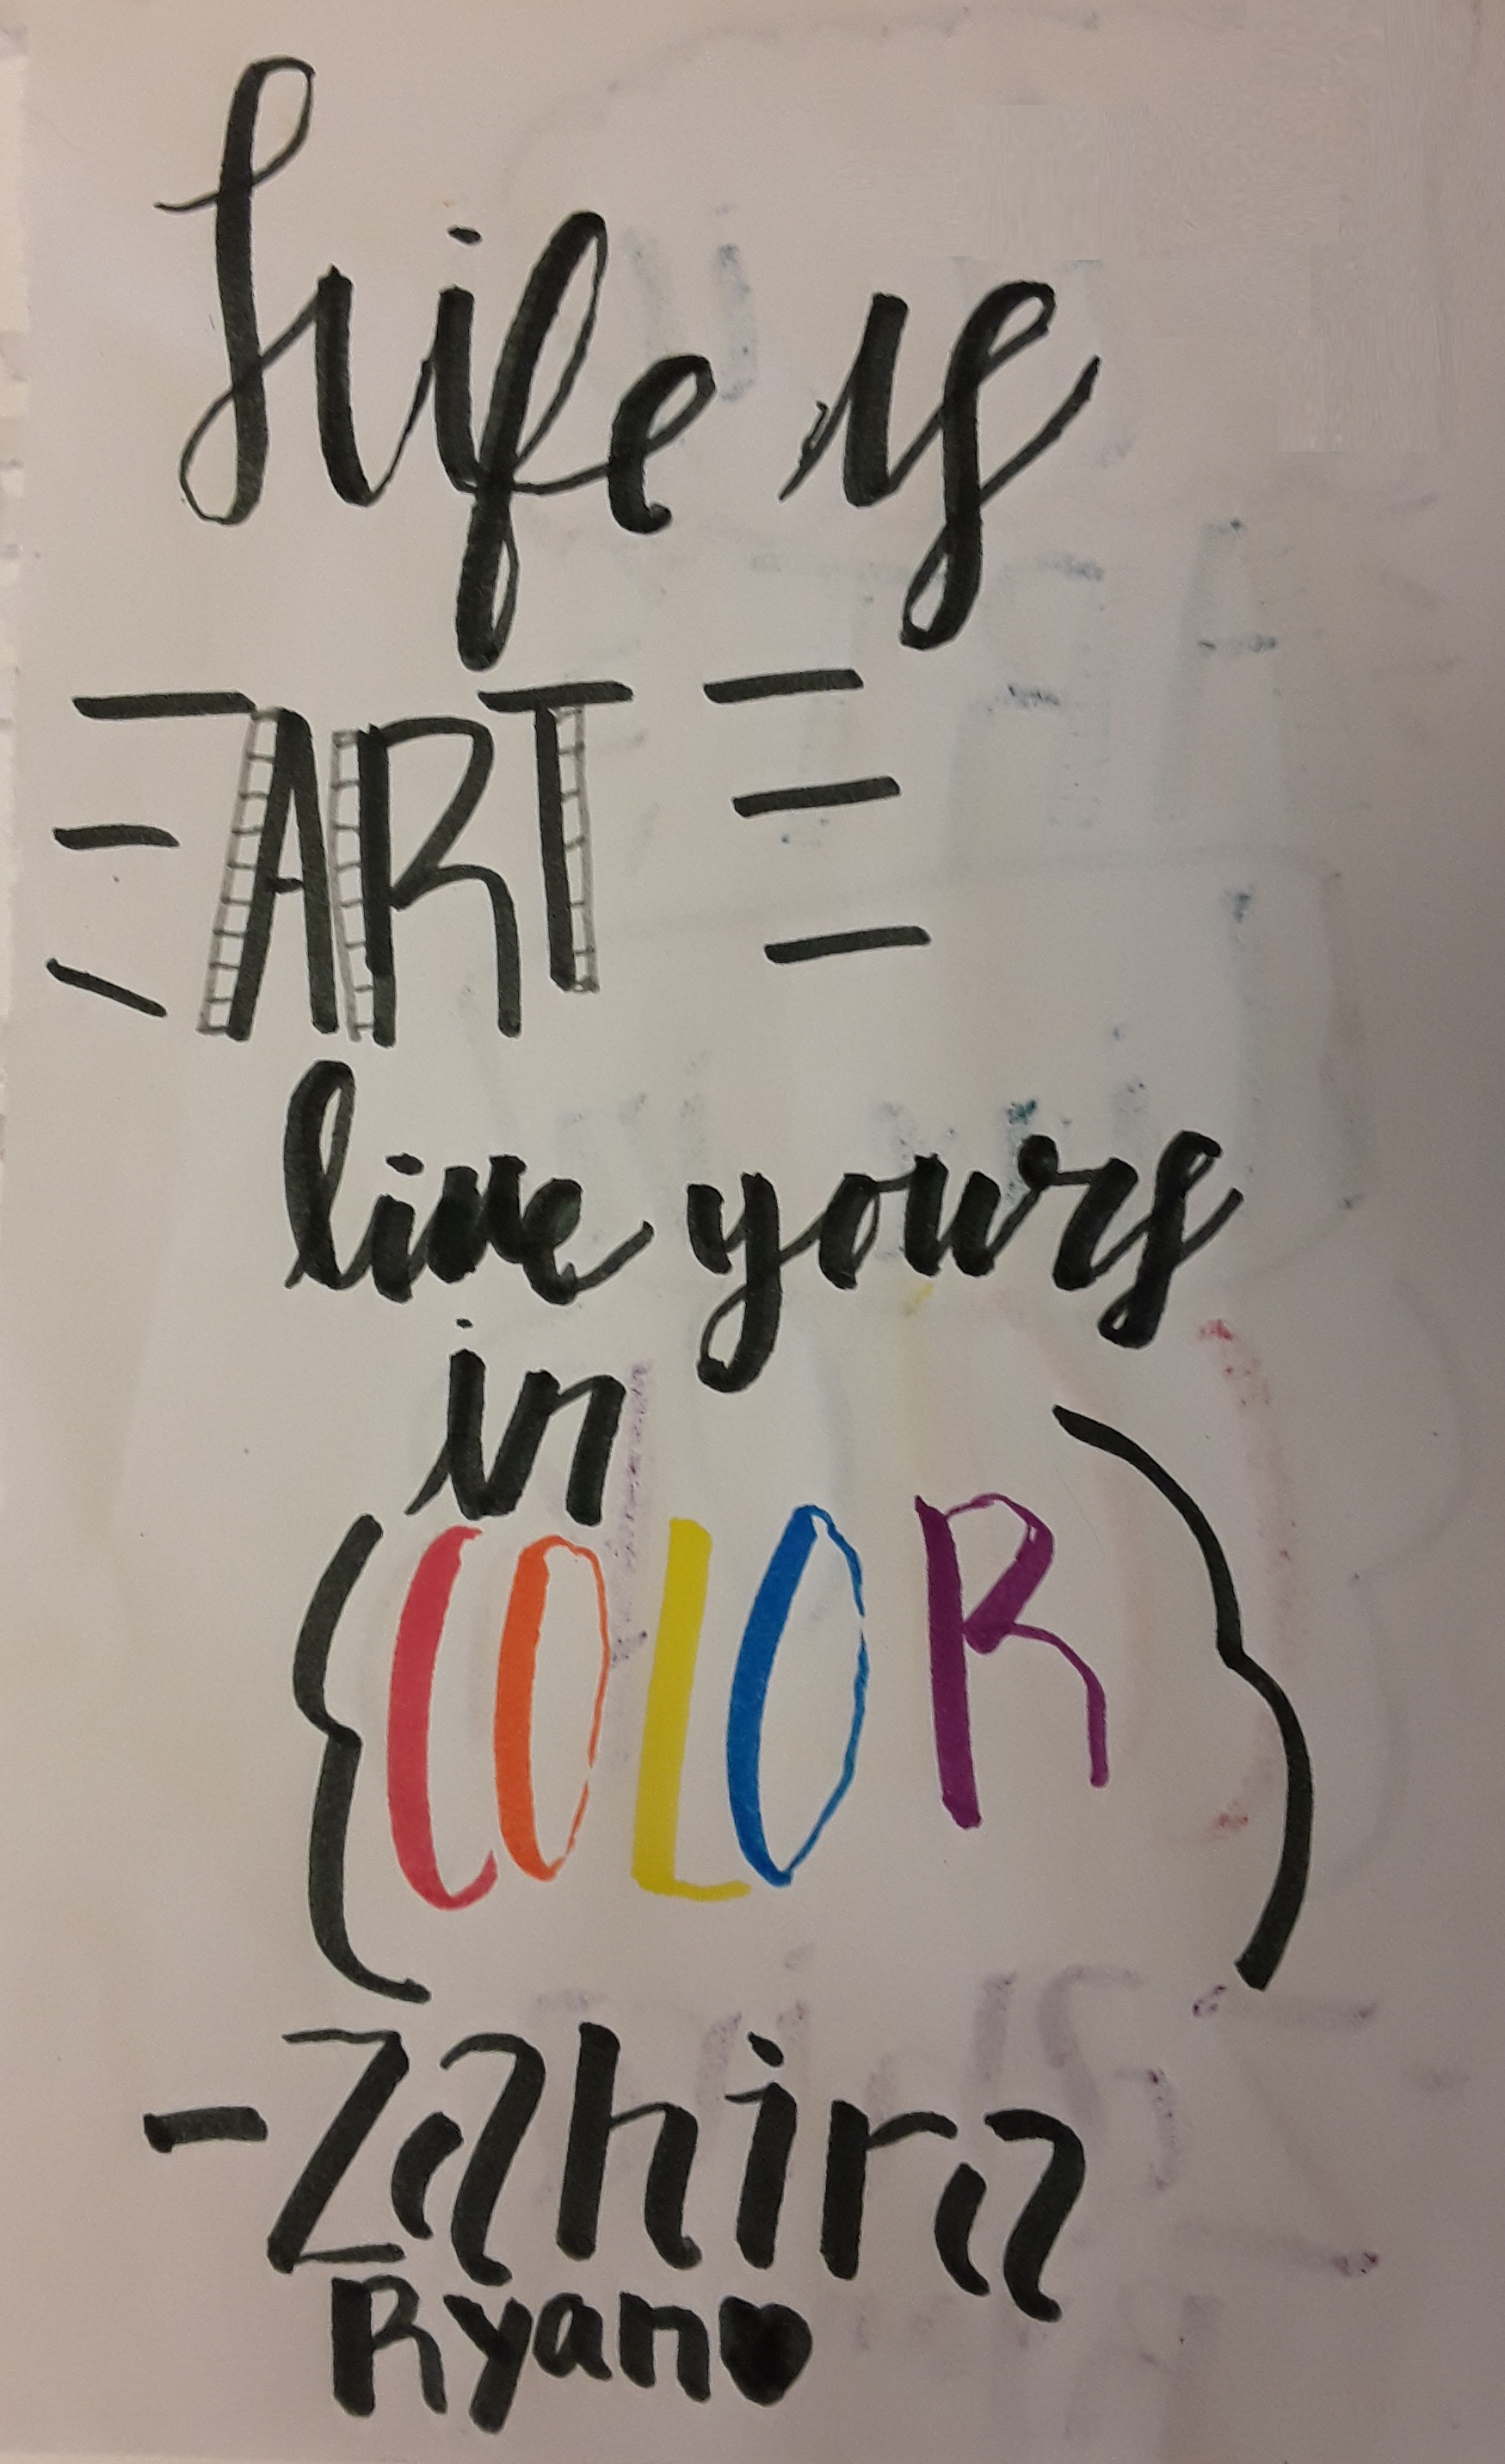 Life is
ART
live yours
in
{COLOR}
-Zahira
Ryan♥